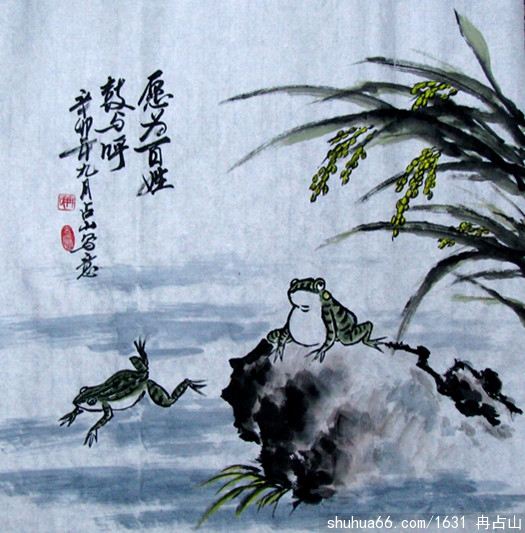 愿为百姓
鼓与呼
辛卯年九月占山写意
冉
shuhua66.com/1631 冉占山